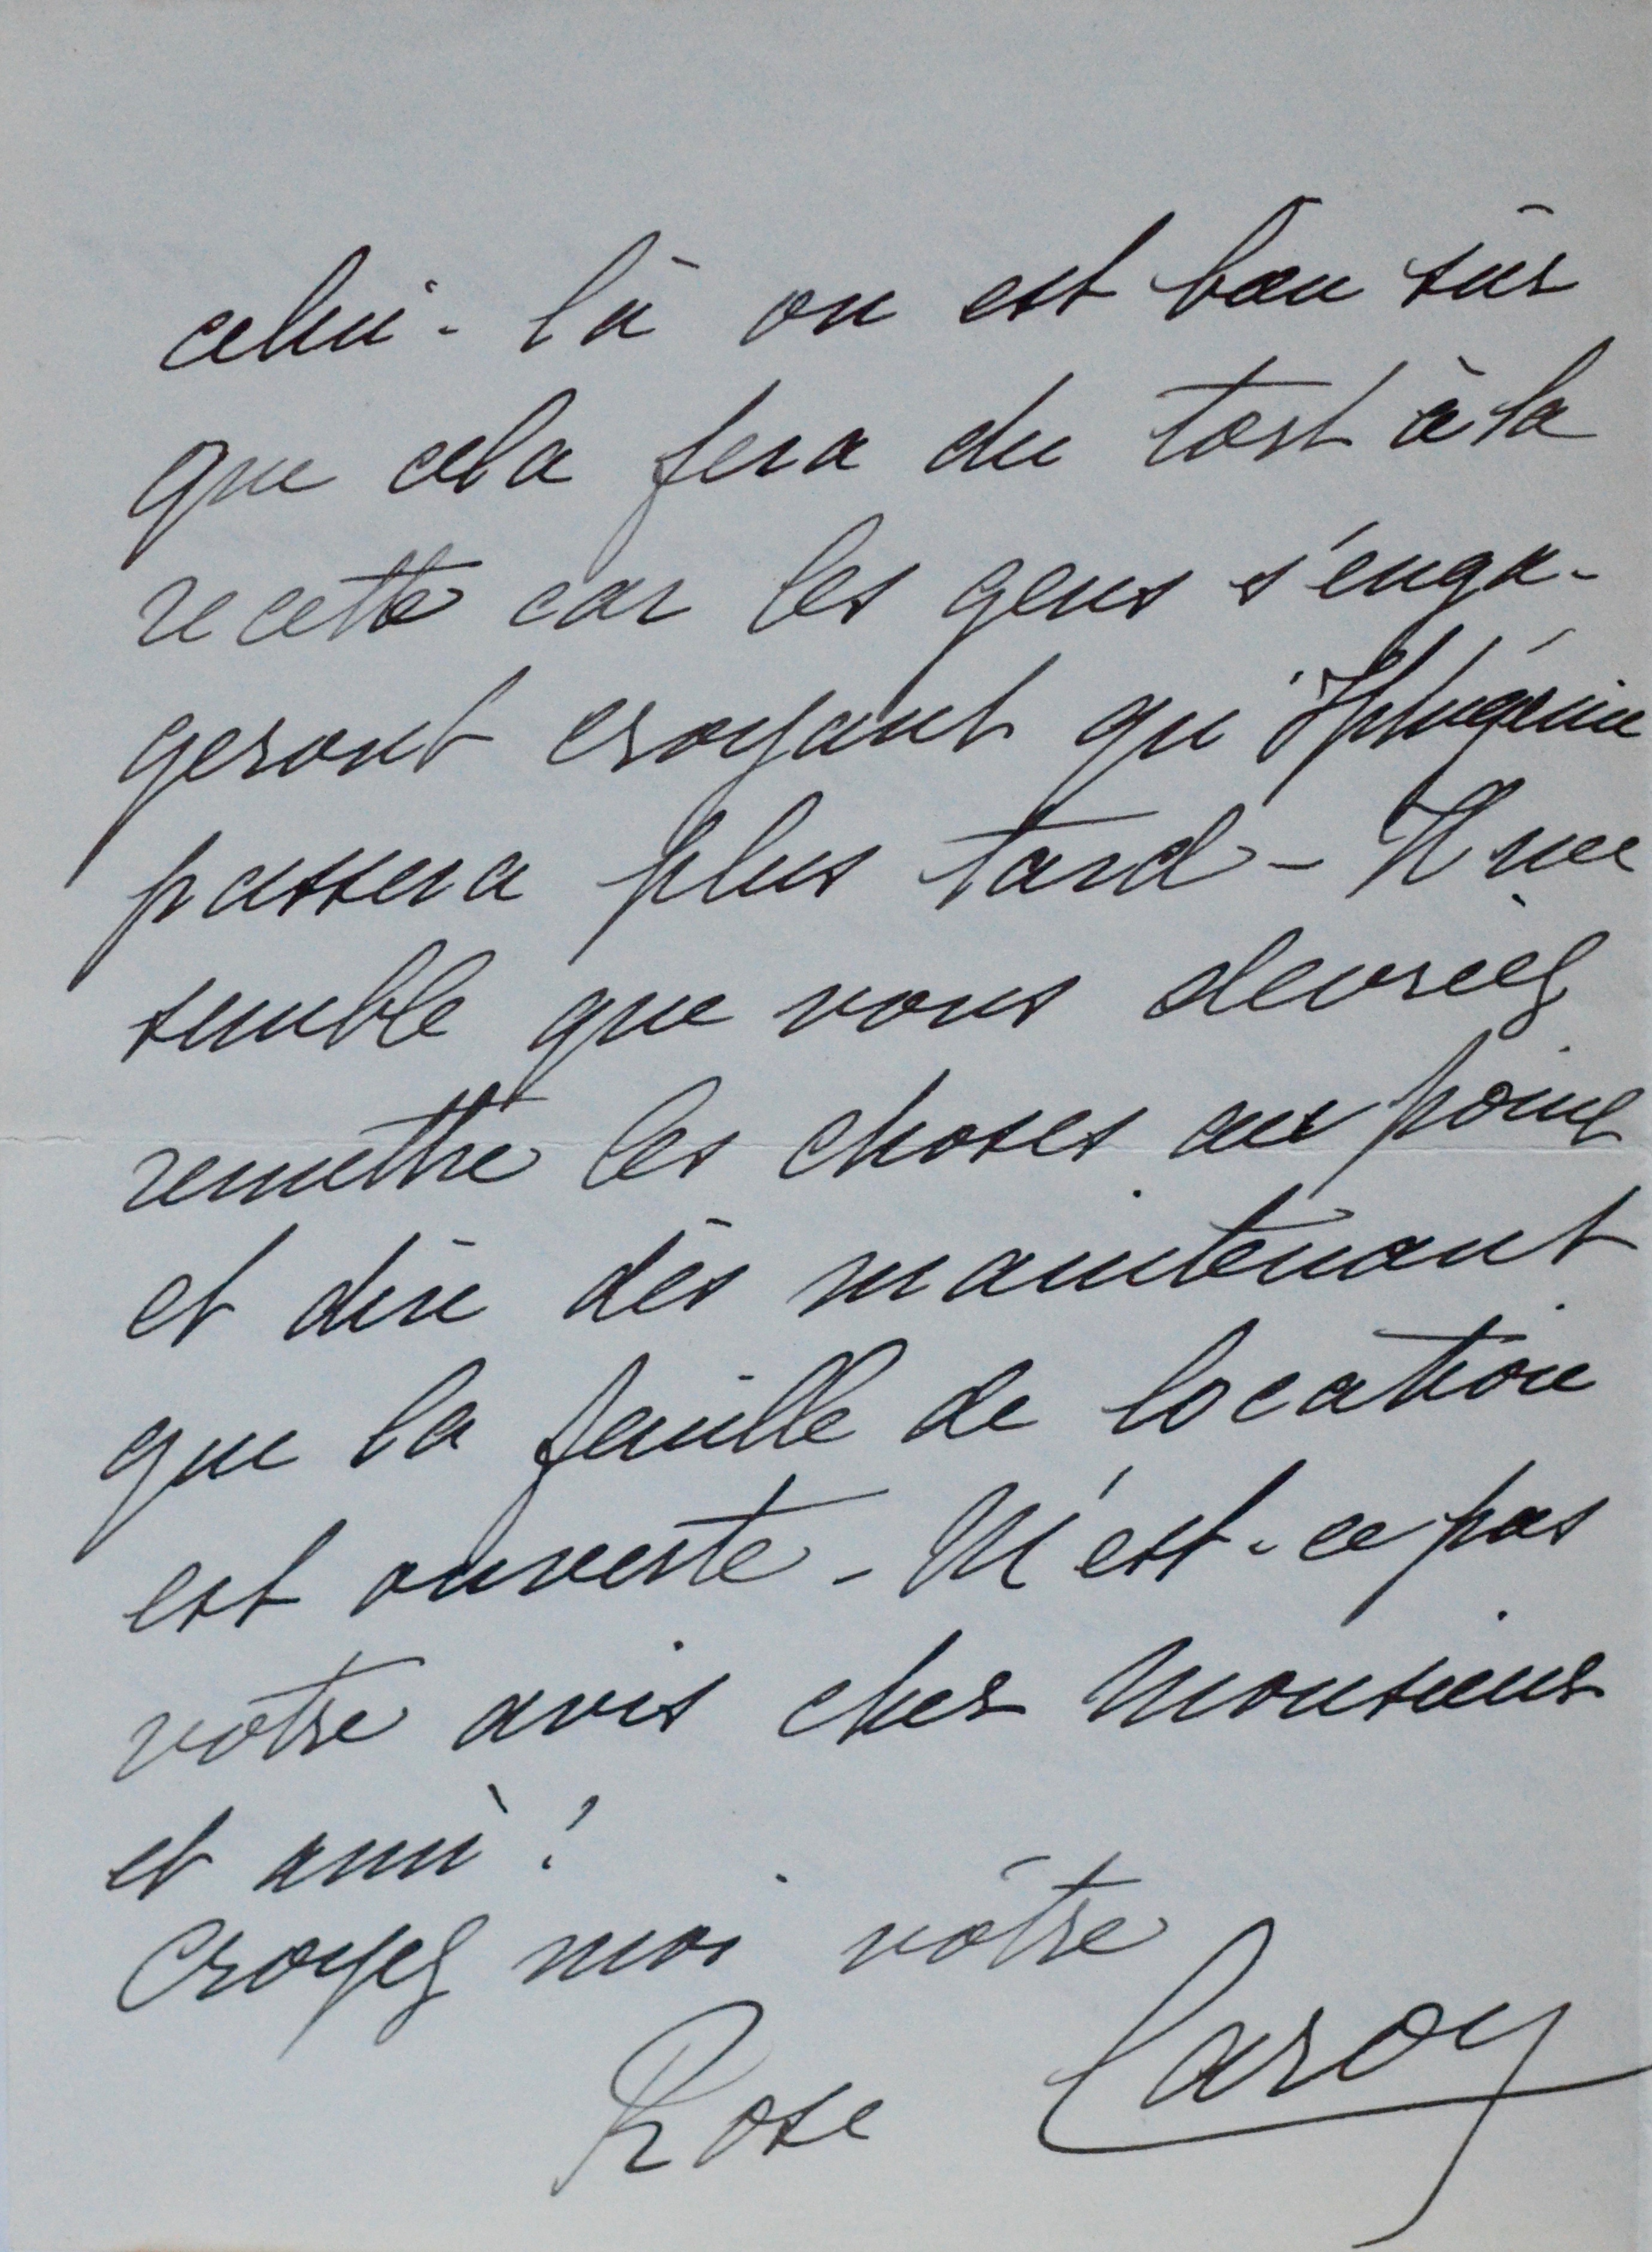 celui-là on est bien sûr
que cela fera du tort à la
recette car les gens s'enga-
geront croyant qu'Iphigénie
passera plus tard - Il me
semble que vous devriez
remettre les choses au point
et dire dès maintenant
que la feuille de location
est ouverte - N'est-ce pas
votre avis cher Monsieur
et ami?
Croyez moi vôtre
Rose Caron